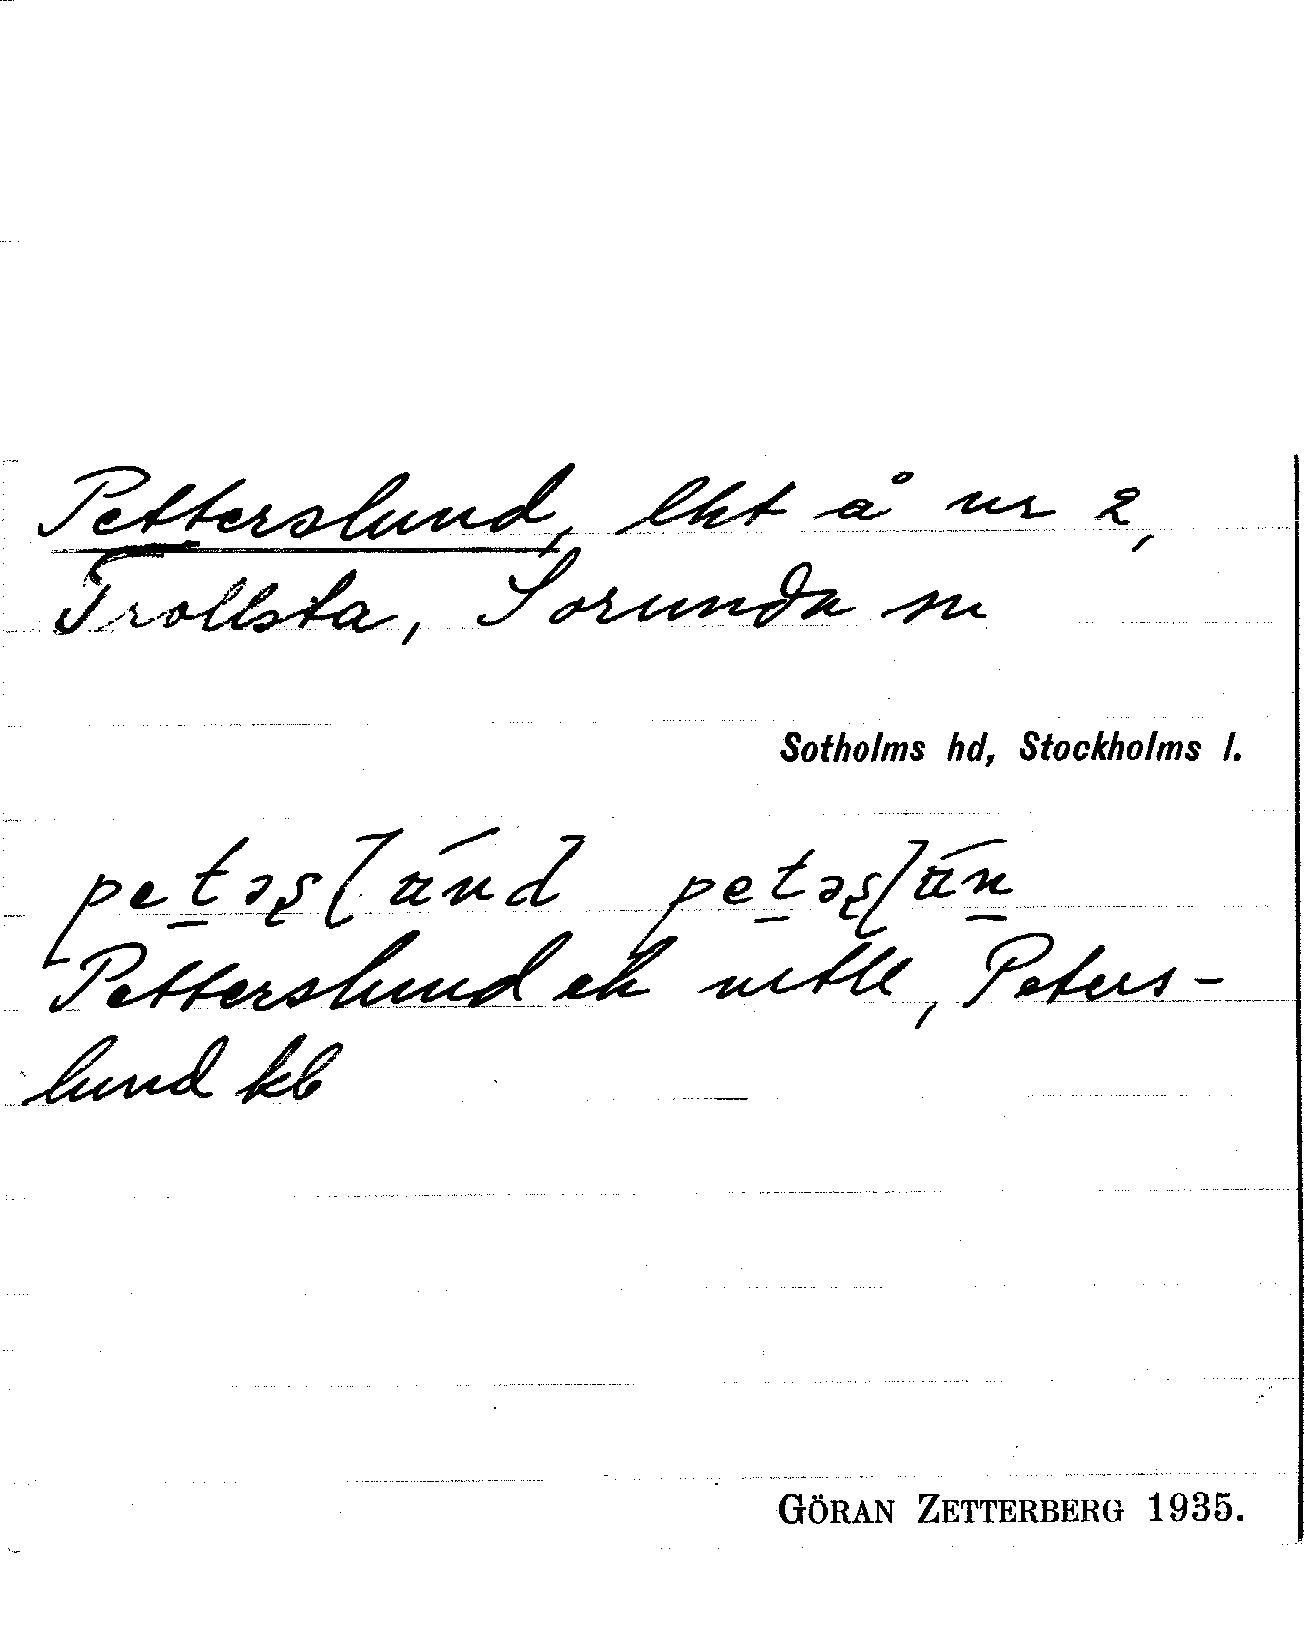 Petterslund, lht å nr 2,
Trollsta, Sorunda sn
Sotholms hd, Stockholms l.
Petterslund ek
Peters-
lund kb
GÖRAN ZETTERBERG 1935.